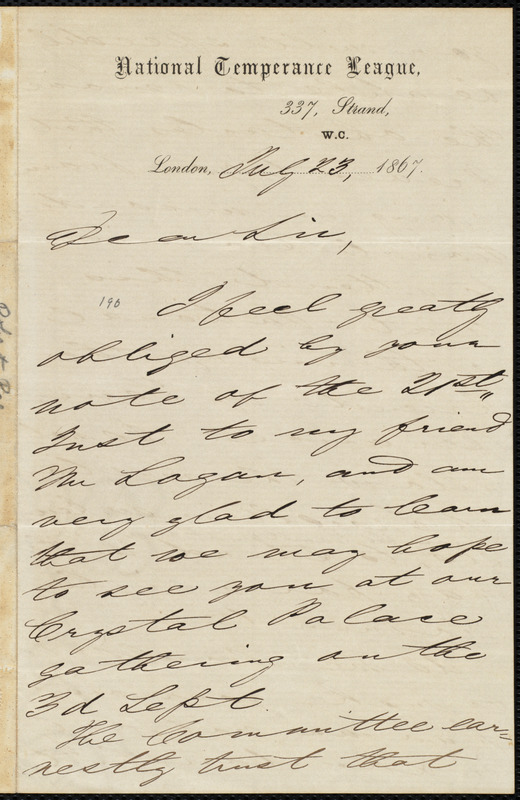 National Temperance League,
337, Strand,
W.C.
London, July 23, 1867.
Dear Sir,
190
I feel greatly
obliged by your
note of the 21st
Inst to my friend
Mr Logan, and am
very glad to learn
that we may hope
to see you at our
Crystal Palace
gathering on the
3d Sept.
The Committee ear=
nestly trust that